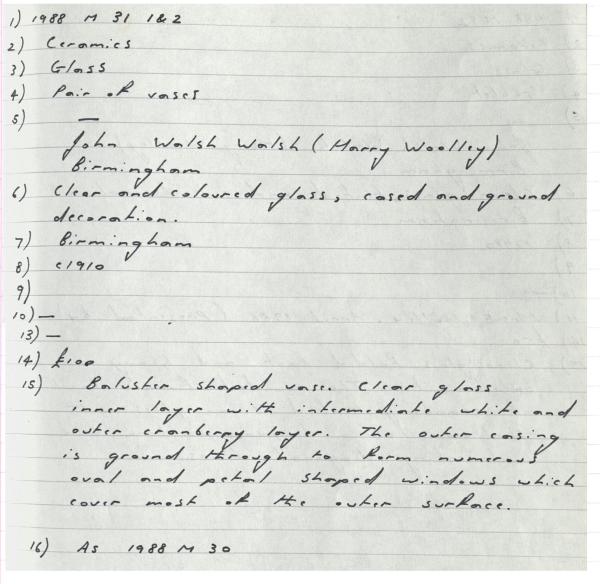 1) 1988 M 31 1&2
2) Ceramics
3) Glass
4) Pair of vases
5) —
John Walsh Walsh (Harry Woolley)
Birmingham
6) Clear and coloured glass, cased and ground
decoration.
7) Birmingham
8) c1910
9)
10) —
13) —
14) £100
15) Baluster shaped vase. Clear glass
inner layer with intermediate white and
outer cranberry layer. The outer casing
is ground through to form numerous
oval and petal shaped windows which
cover most of the outer surface.
16) As 1988 M 30